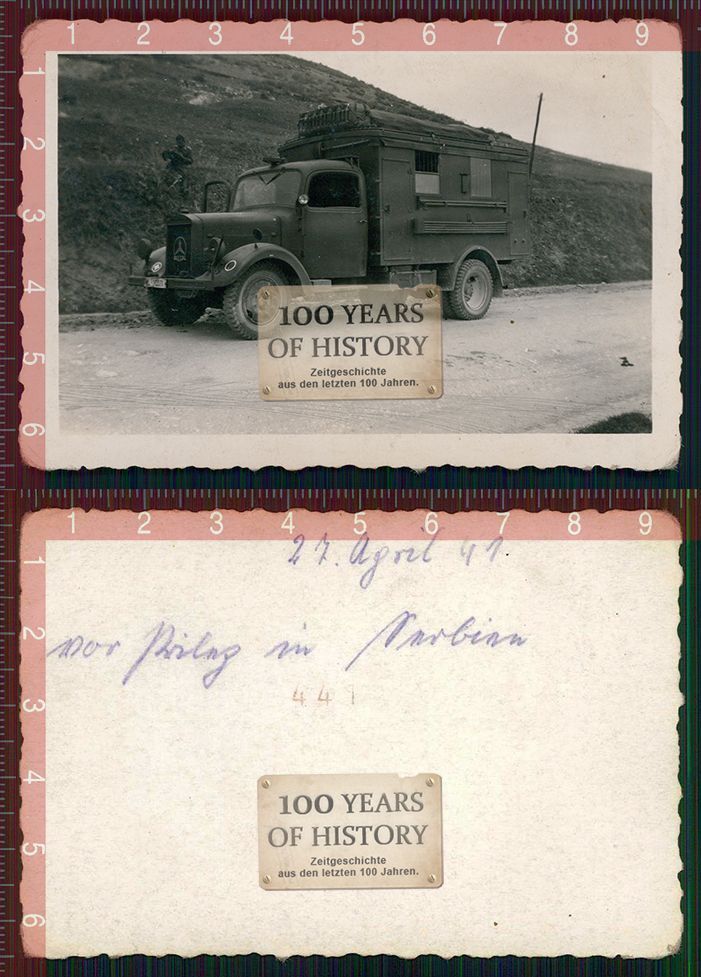 1 2 3 4 5 6 7 8 9
1
2
3
4
5
6
100 YEARS
OF HISTORY
Zeitgeschichte
aus den letzten 100 Jahren.
1 2 3 4 5 6 7 8 9
1
2
3
4
5
6
27. April 41
vor Prilep in Serbien
441
100 YEARS
OF HISTORY
Zeitgeschichte
aus den letzten 100 Jahren.